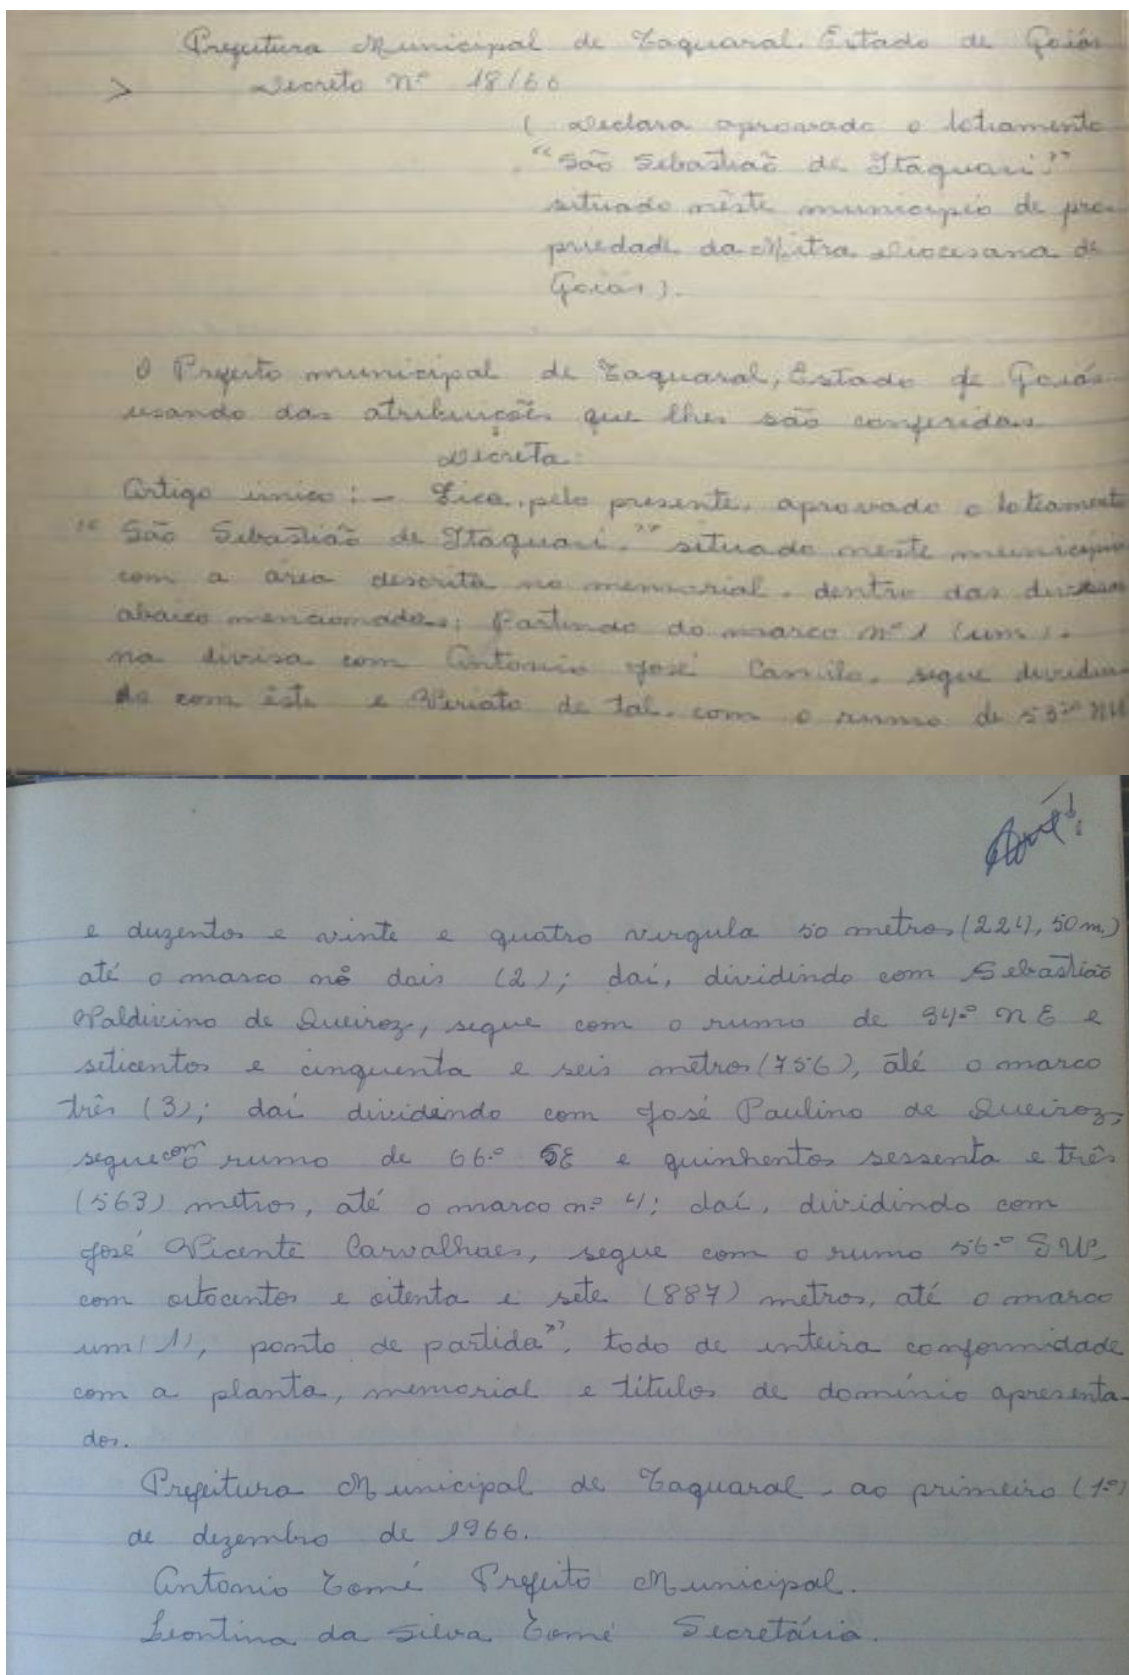 Prefeitura Municipal de Taquaral. Estado de Goiás
> Decreto Nº 18/66
( Declara aprovado o loteamento
"São Sebastião de Itaguari."
situado nêste município de pro-
priedade da Mitra Diocesana de
Goiás).
O Prefeito municipal de Taquaral, Estado de Goiás
usando das atribuições que lhes são conferidas
Decreta:
Artigo único: - Fica, pelo presente, aprovado o loteamento
"São Sebastião de Itaguari." situado neste município
com a área descrita no memorial, dentro das divisas
abaixo mencionadas: Partindo do marco nº 1 (um).
na divisa com Antonio José Camilo, segue dividin-
do com êste e Viriato de tal, com o rumo de 53º NW
e duzentos e vinte e quatro virgula 50 metros (224,50m)
até o marco nº dois (2); daí, dividindo com Sebastião
Valdivino de Queiroz, segue com o rumo de 34º NE e
seticentos e cinquenta e seis metros (756), até o marco
três (3); daí dividindo com José Paulino de Queiroz,
segue com o rumo de 66º SE e quinhentos sessenta e três
(563) metros, até o marco nº 4; daí, dividindo com
José Vicente Carvalhaes, segue com o rumo 56º SW,
com oitocentos e oitenta e sete (887) metros, até o marco
um (1), ponto de partida", todo de inteira conformidade
com a planta, memorial e titulos de domínio apresenta-
dos.
Prefeitura Municipal de Taquaral, ao primeiro (1º)
de dezembro de 1966.
Antonio Tomé Prefeito Municipal.
Leontina da Silva Tomé Secretária.